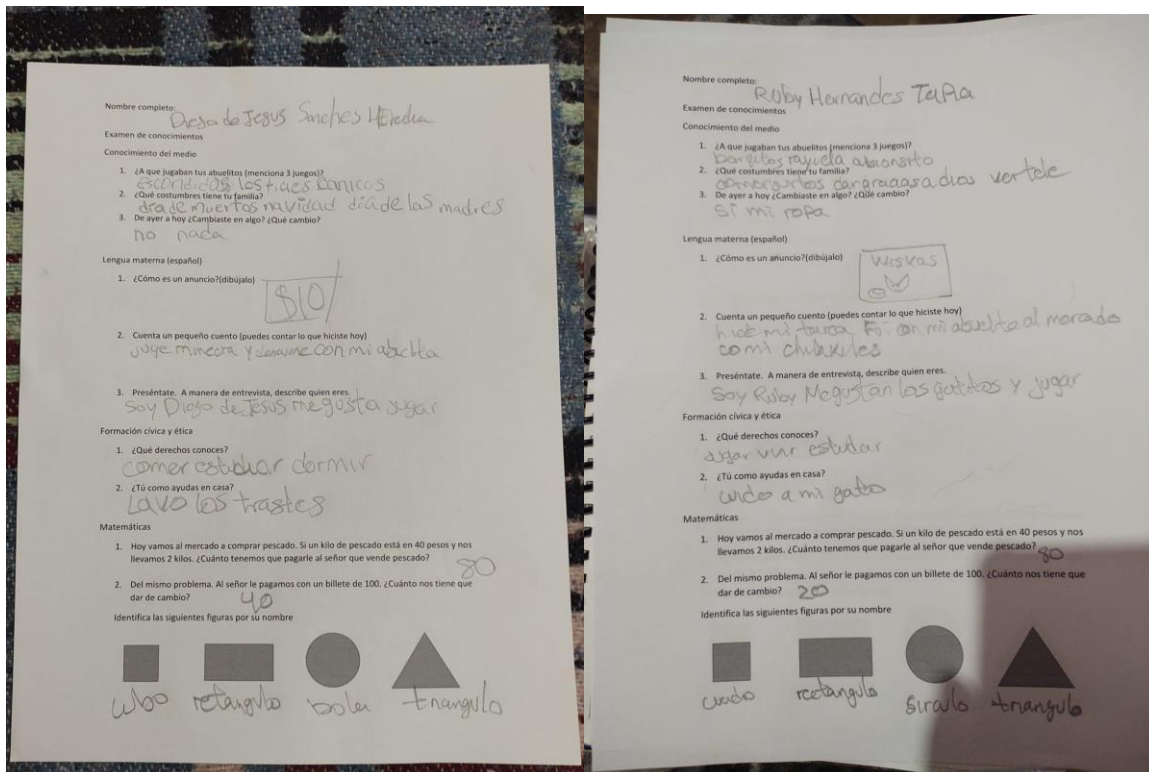 Nombre completo:
Diego de Jesus Sanches HEredia
Examen de conocimientos
Conocimiento del medio
1. ¿A que jugaban tus abuelitos (menciona 3 juegos)?
escondidas los traes canicas
2. ¿Qué costumbres tiene tu familia?
dia de muertos navidad dia de las madres
3. De ayer a hoy ¿Cambiaste en algo? ¿Qué cambio?
no nada
Lengua materna (español)
1. ¿Cómo es un anuncio?(dibújalo)
$10
2. Cuenta un pequeño cuento (puedes contar lo que hiciste hoy)
juge minecra y desayune con mi abuelita
3. Preséntate. A manera de entrevista, describe quien eres.
Soy Diego de Jesus me gusta jugar
Formación cívica y ética
1. ¿Qué derechos conoces?
comer estudiar dormir
2. ¿Tú como ayudas en casa?
Lavo los trastes
Matemáticas
1. Hoy vamos al mercado a comprar pescado. Si un kilo de pescado está en 40 pesos y nos
llevamos 2 kilos. ¿Cuánto tenemos que pagarle al señor que vende pescado?
80
2. Del mismo problema. Al señor le pagamos con un billete de 100. ¿Cuánto nos tiene que
dar de cambio? 40
Identifica las siguientes figuras por su nombre
cubo retangulo bola triangulo
Nombre completo:
Ruby Hernandes Tapia
Examen de conocimientos
Conocimiento del medio
1. ¿A que jugaban tus abuelitos (menciona 3 juegos)?
barquitos rayuela abionsito
2. ¿Qué costumbres tiene tu familia?
dar a dios
3. De ayer a hoy ¿Cambiaste en algo? ¿Qué cambio?
Si mi ropa
Lengua materna (español)
1. ¿Cómo es un anuncio?(dibújalo)
Wiskas
2. Cuenta un pequeño cuento (puedes contar lo que hiciste hoy)
hice mi tarea Fui con mi abuelto al mercado
comi chilakiles
3. Preséntate. A manera de entrevista, describe quien eres.
Soy Ruby Me gustan los gatitos y jugar
Formación cívica y ética
1. ¿Qué derechos conoces?
jugar vivir estudar
2. ¿Tú como ayudas en casa?
cuido a mi gato
Matemáticas
1. Hoy vamos al mercado a comprar pescado. Si un kilo de pescado está en 40 pesos y nos
llevamos 2 kilos. ¿Cuánto tenemos que pagarle al señor que vende pescado? 80
2. Del mismo problema. Al señor le pagamos con un billete de 100. ¿Cuánto nos tiene que
dar de cambio? 20
Identifica las siguientes figuras por su nombre
rectangulo sirculo triangulo